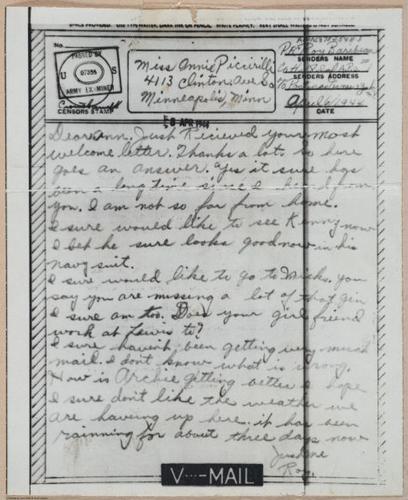 No.
PASSED BY
U S
07355
ARMY EXAMINER
CENSORS STAMP
Miss Annie
4113 Clinton Ave So
Minneapolis, Minn
Pvt Roy
SENDERS NAME
SENDERS ADDRESS
April 6, 1944
DATE
8 APR 1944
Dear Ann, Just Recieved your most
welcome letter. Thanks a lot. So here
goes an answer. Yes it sure has
been a long time since I hear from
you. I am not so far from home.
I sure would like to see Kenny now
I bet he sure looks good now in his
navy suit.
I sure would like to go to you
say you are missing a lot of that gin
I sure am too. Does your girl friend
work at Lewis to?
I sure havent been getting very much
mail. I don't know what is wrong.
How is Archie getting better I hope
I sure don't like the weather we
are haveing up here. it has been
rainning for about three days now
Roy.
V···—MAIL